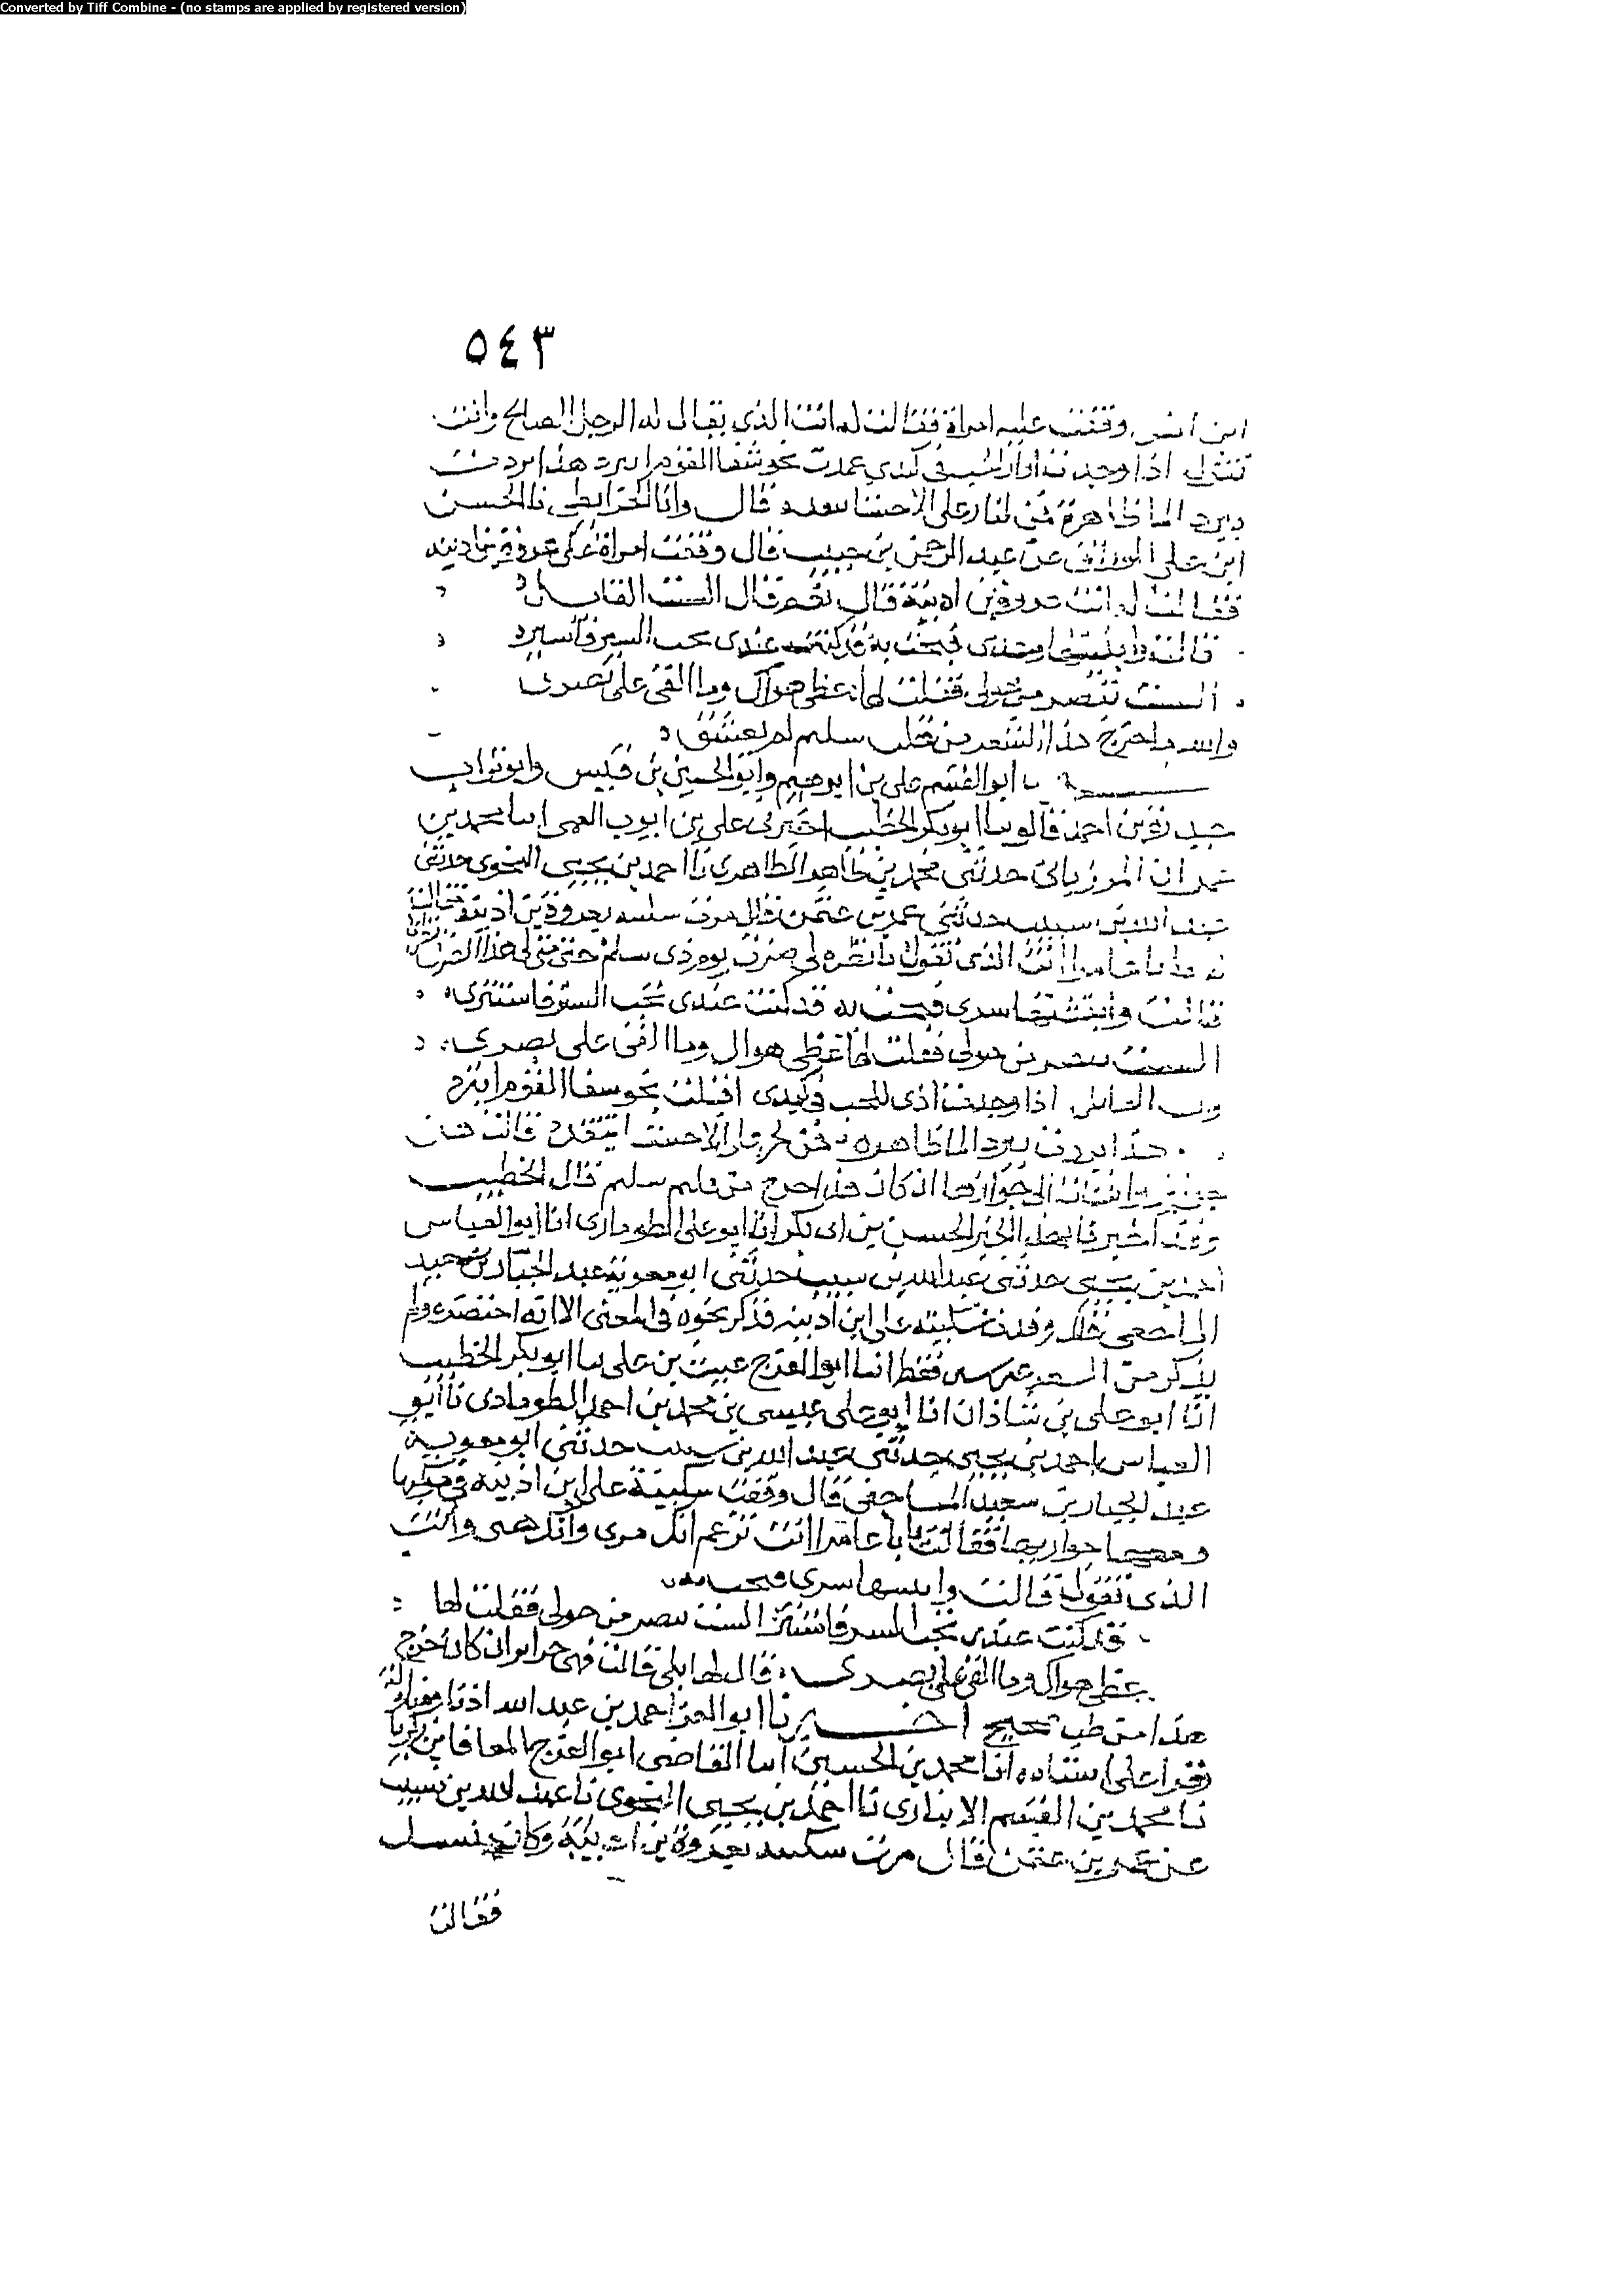 Converted by Tiff Combine - (no stamps are applied by registered version)
٥٤٣
ابن انس وقفت عليه امراة فقالت له انت الذي يقال له الرجل الصالح وانت
تقول اذا وجدت اوار الحب في كبدي عمدت نحو سقا القوم ابترد هذا بردت
ببرد الما ظاهره فمن لنار على الاحشا قال وانا الخرايطي نا الحسن
ابن علي عن عبد الرحمن بن حبيب قال وقفت امراة على عروة بن اذينه
فقالت له انت عروة بن اذينة قال نعم قال الست القايل
قالت وابثثتها وجدي فبحت به قد كنت عندي تحب الستر فاستتر
الست تبصر من حولي فقلت لها غطى هواك وما القى على بصرى
والله ما خرج هذا الشعر من قلب سليم لم يعشق
نا ابو القسم علي بن ابرهيم وابو الحسين بن قبيس وابو تراب
حيدرة بن احمد قالو نا ابو بكر الخطيب اخبرني علي بن ايوب القمى انا محمد بن
عمران المرزباني حدثني محمد بن طاهر الطاهرى نا احمد بن يحيى النحوى حدثنى
عبد الله بن سبيب حدثني عمر بن عثمن قال مرت سكينه بعروة بن اذينة فقالت
له يا ابا عامر انت الذي تقول يا نظره لي ضرت يوم ذى سلم حتى متى لي هذا الضرار
قالت وابثثتها سرى فبحت به قد كنت عندى تحب الستر فاستترى
الست تبصر من حولي فقلت لها غطى هواك وما القى على بصرى
وانت القايل اذا وجدت اذى للحب في كبدى اقبلت نحو سقا القوم ابترد
هذا بردت ببرد الما ظاهره فمن لحر على الاحشا يتقد قالت
الى جوارها ان كان هذا خرج من قلب سليم قال الخطيب
الحسن بن ابى بكر انا ابو على الطومارى انا ابو العباس
احمد بن يحيى حدثنى عبد الله بن سبيب حدثنى ابو معوية عبد الجبار بن سعيد
المساحقى قال وقفت سكينه على ابن اذينه فذكر نحوه في المعنى الا انه اختصره ولم
يذكر من الشعر غير فقط انا ابو الفرج غيث بن على نا ابو بكر الخطيب
انا ابو على بن شاذان انا ابو على عيسى بن محمد بن احمد الطومارى نا ابو
العباس احمد بن يحيى حدثنى عبد الله بن سبيب حدثنى ابو معوية
عبد الجبار بن سعيد المساحقى قال وقفت سكينة على ابن اذينه في موكبها
ومعها جواريها فقالت يا با عامر انت تزعم انك برى وانك هني وانت
الذى تقول قالت وابثثتها سرى فبحت به
قد كنت عندى تحب الستر فاستتر الست تبصر من حولى فقلت لها
غطى هواك وما القى على بصرى قال لها بلى قالت هن حراير ان كان خرج
هذا من قلب صحيح اخبرنا ابو العز احمد بن عبد الله اذنا ومناولة
وقرا على اسناده انا محمد بن الحسين انا القاضى ابو الفرج المعافا بن زكريا
نا محمد بن القسم الانبارى نا احمد بن يحيى النحوى نا عبد الله بن سبيب
عن عمر بن عثمن قال مرت سكينه بعروة بن اذينة وكان
فقالت